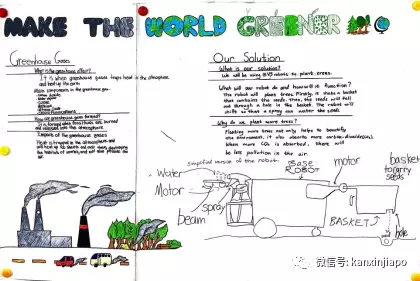 MAKE THE WORLD GREENER
Greenhouse Gases
What is the greenhouse effect?
It is when greenhouse gases traps heat in the atmosphere
and heat up the earth.
Main components in the greenhouse gas:
How are greenhouse gas formed?
It is formed when fossil fuels are burned
and released into the atmosphere.
Impacts of the greenhouse gases
Heat is trapped in the atmosphere and
will heat up the Earth and
Our Solution
What is our solution?
We will be using robots to plant trees.
What will our robot do and how will it function?
The robot will plant trees. Firstly, is that a basket
that contains the seeds. Then, the seeds will fall
out through a hole in the basket. The robot will
shift so that a spray can water the seeds.
Why do we plant more trees?
Planting more trees not only helps to beautify
the environment, it also absorbs more carbon dioxide(CO2).
When more CO2 is absorbed, there will
be less pollution in the air.
simplified version of the robot:
Water
Motor
beam
spray
BASE
ROBOT
motor
basket
to carry
seeds
BASKET
hole
微信号: kanxinjiapo